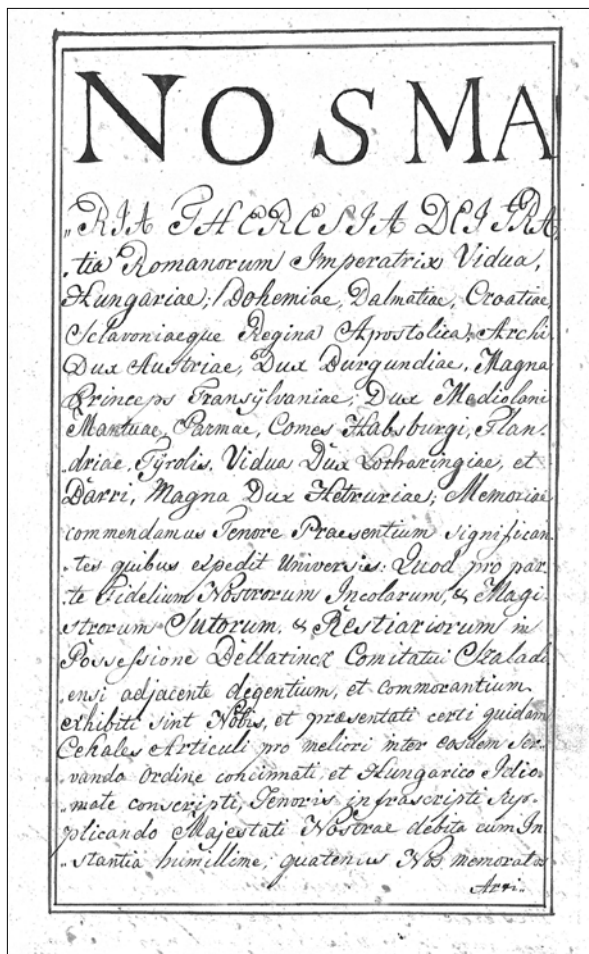 NOS MA
„RIA THERESIA DEI GRA„
„tia Romanorum Imperatrix Vidua,
Hungariae, Bohemiae, Dalmatiae, Croatiae,
Sclavoniaeque Regina Apostolica, Archi
Dux Austriae, Dux Burgundiae, Magna
Princeps Transÿlvaniae, Dux Mediolani
Mantuae, Parmae, Comes Habsburgi, Flan„
„driae, Tÿrolis, Vidua Dux Lotharingiae, et
Barri, Magna Dux Hetruriae; Memoriae
commendamus Tenore Praesentium significan„
„tes quibus expedit Universis: Quod pro par„
„te Fidelium Nostrorum Incolarum, & Magi„
„strorum Sutorum, & Restiariorum in
Possessione Bellatincz Comitatui Szaladi„
ensi adjacente degentium, et commorantium
exhibiti sint Nobis, et praesentati certi quidam
Cehales Articuli pro meliori inter eosdem ser„
„vando Ordine concinnati, et Hungarico Idio„
„mate conscripti, Tenoris infrascripti sup„
„plicando Majestati Nostrae debita cum In„
„stantia humillime, quatenus Nos memoratos
Arti„